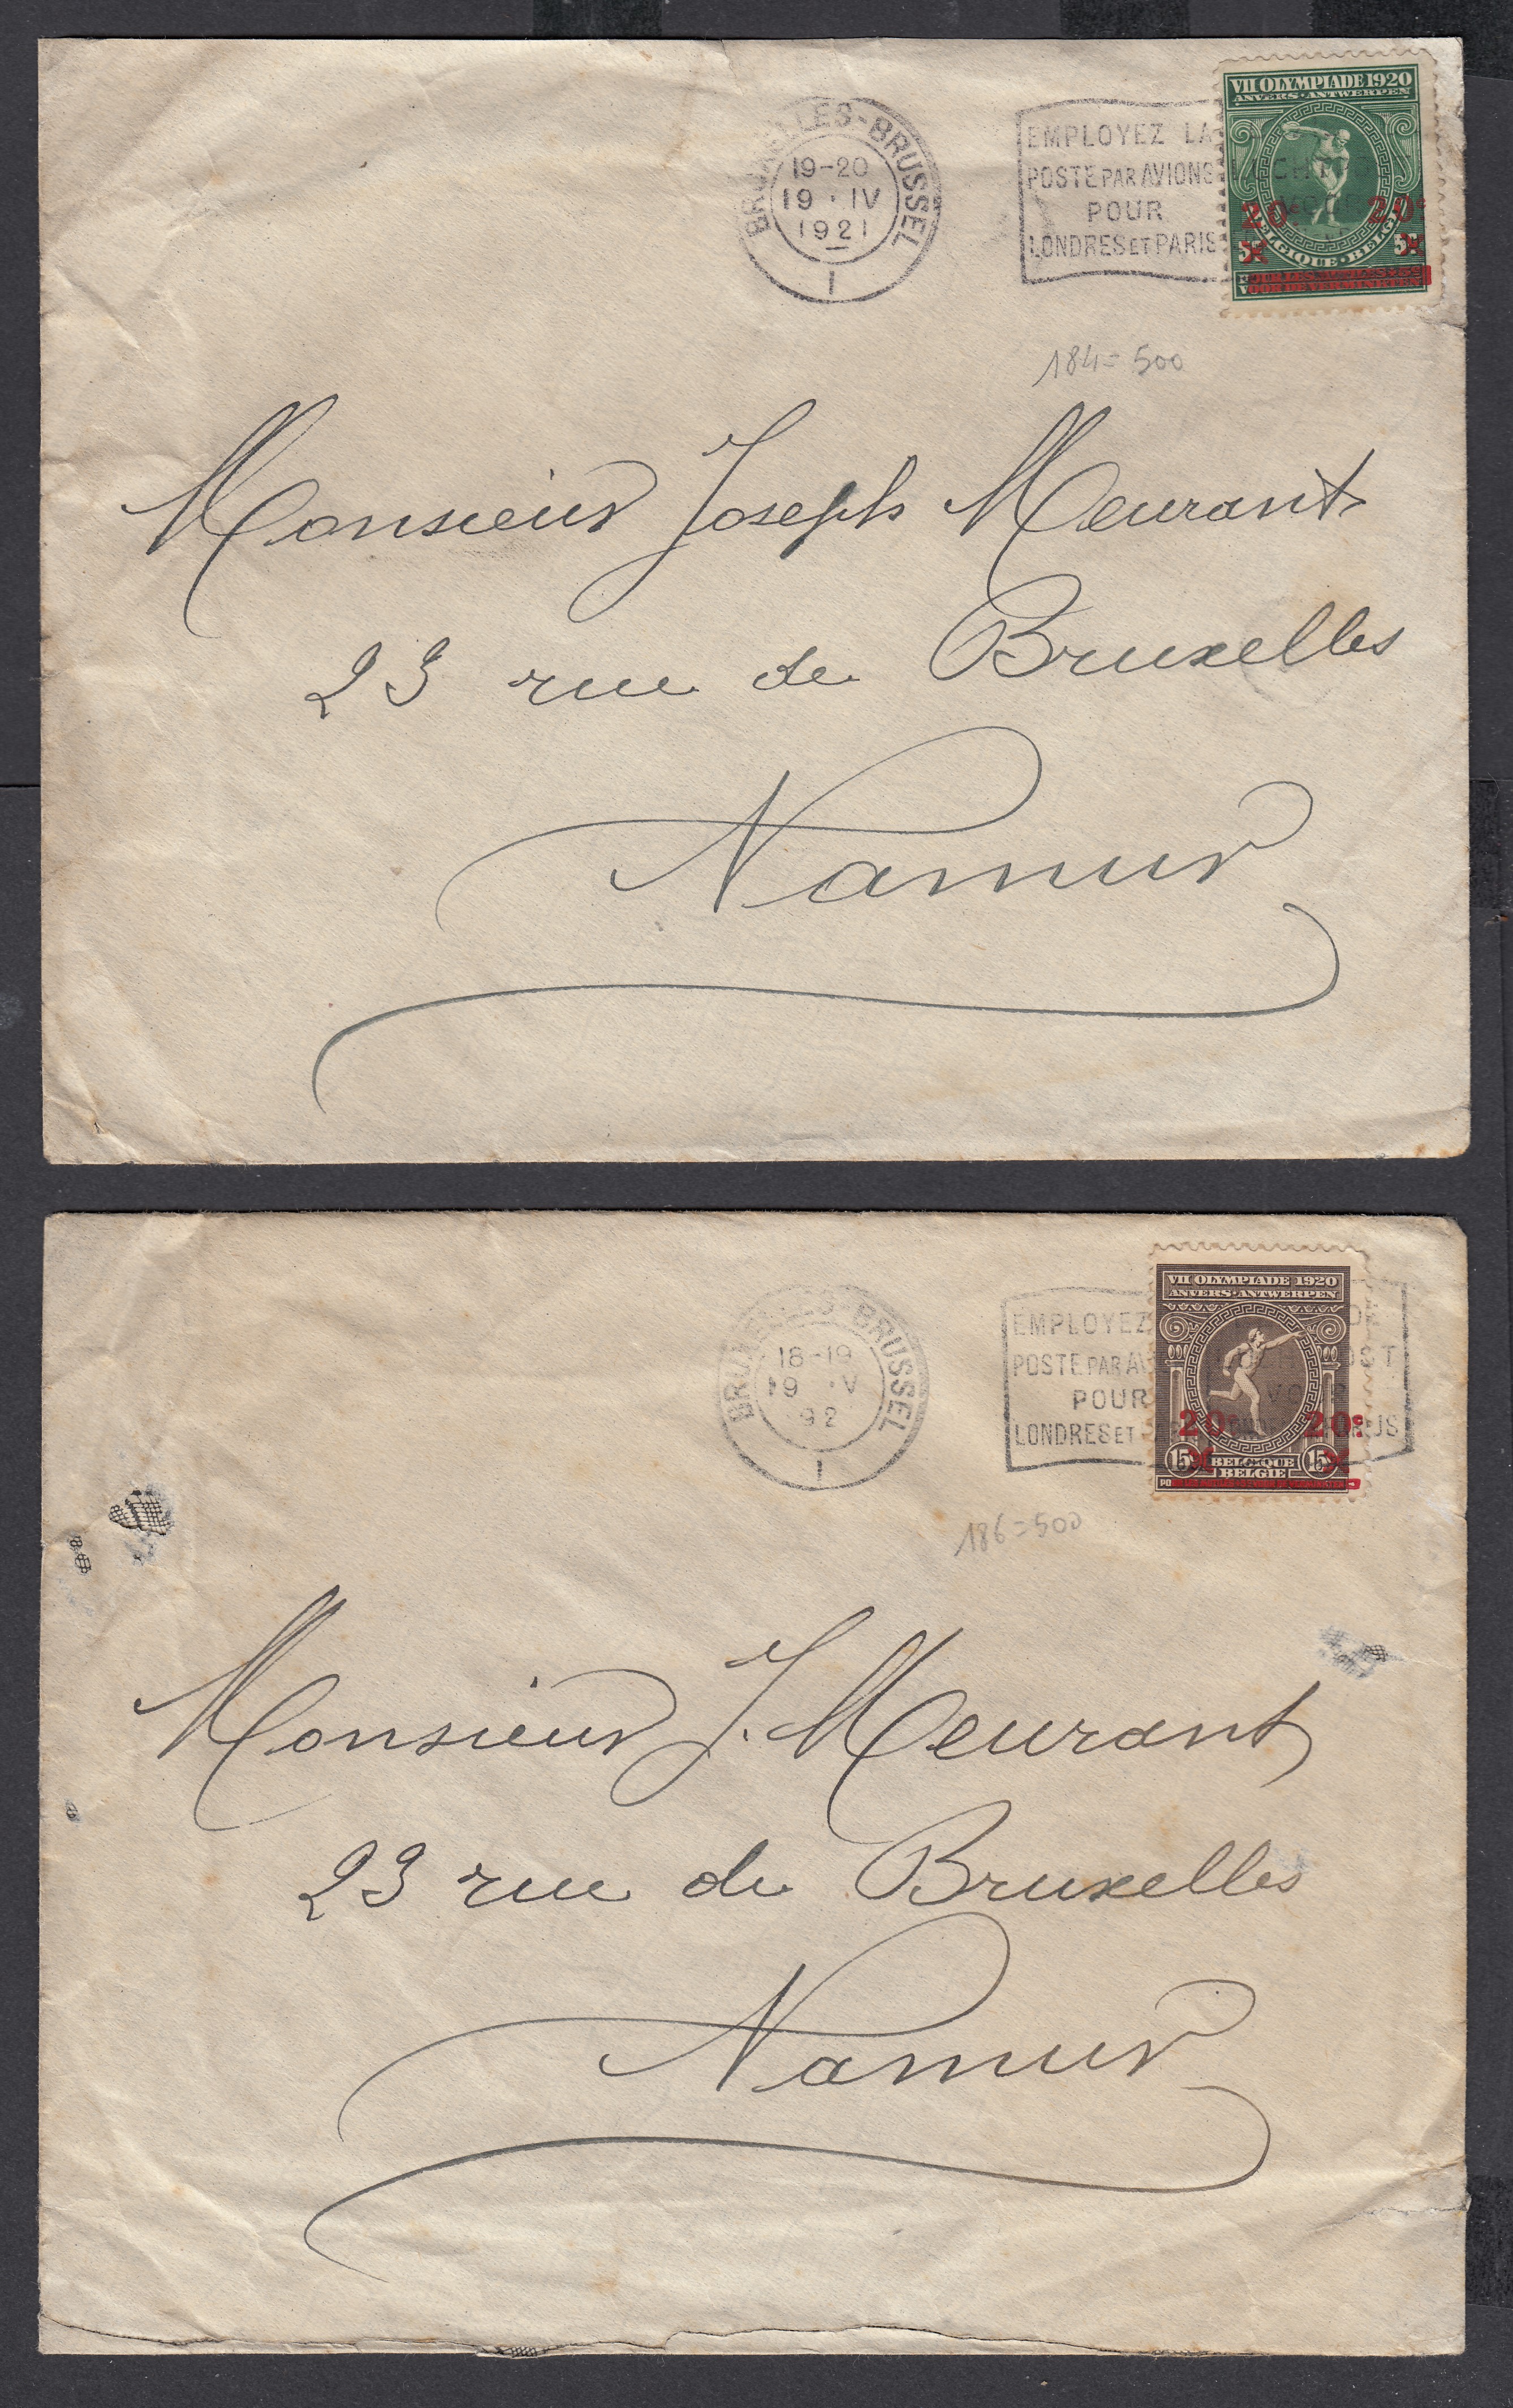 BRUXELLES-BRUSSEL
19-20
19 · IV
1921
1
EMPLOYEZ LA
POSTE PAR AVIONS
POUR
LONDRES ET PARIS
VII OLYMPIADE 1920
ANVERS·ANTWERPEN
20c 20c
5 5
BELGIQUE·BELGIE
184=500
Monsieur Joseph Meurant
23 rue de Bruxelles
Namur
BRUXELLES-BRUSSEL
18-19
19 · V
92
1
EMPLOYEZ
POSTE PAR AV
POUR
LONDRES ET
VII OLYMPIADE 1920
ANVERS·ANTWERPEN
20c 20c
15 BELGIQUE 15
BELGIE
186=500
Monsieur J. Meurant
23 rue de Bruxelles
Namur